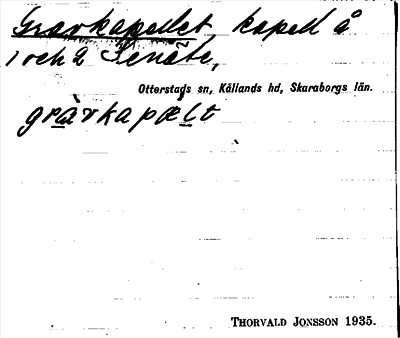 Gravkapellet kapell å
1 och 2 Senäte,
Otterstads sn, Kållands hd, Skaraborgs län.
gràvkapæ̀lt
THORVALD JONSSON 1935.